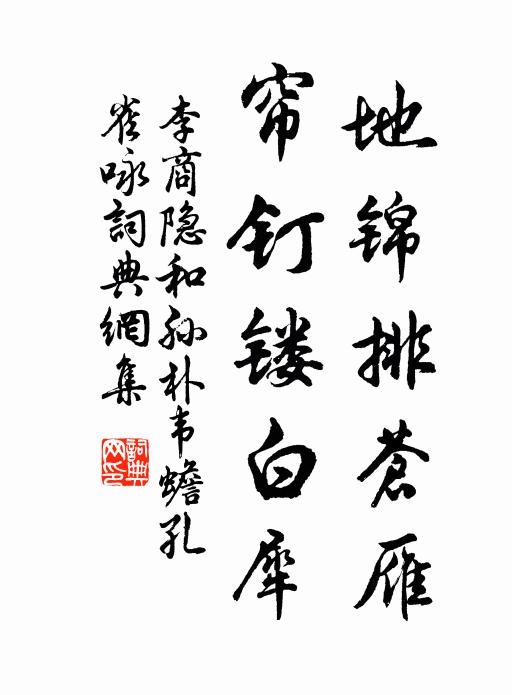 地锦排苍雁
帘钉镂白犀
李商隐和孙朴韦蟾孔
雀咏詞典網集
詞典
网印